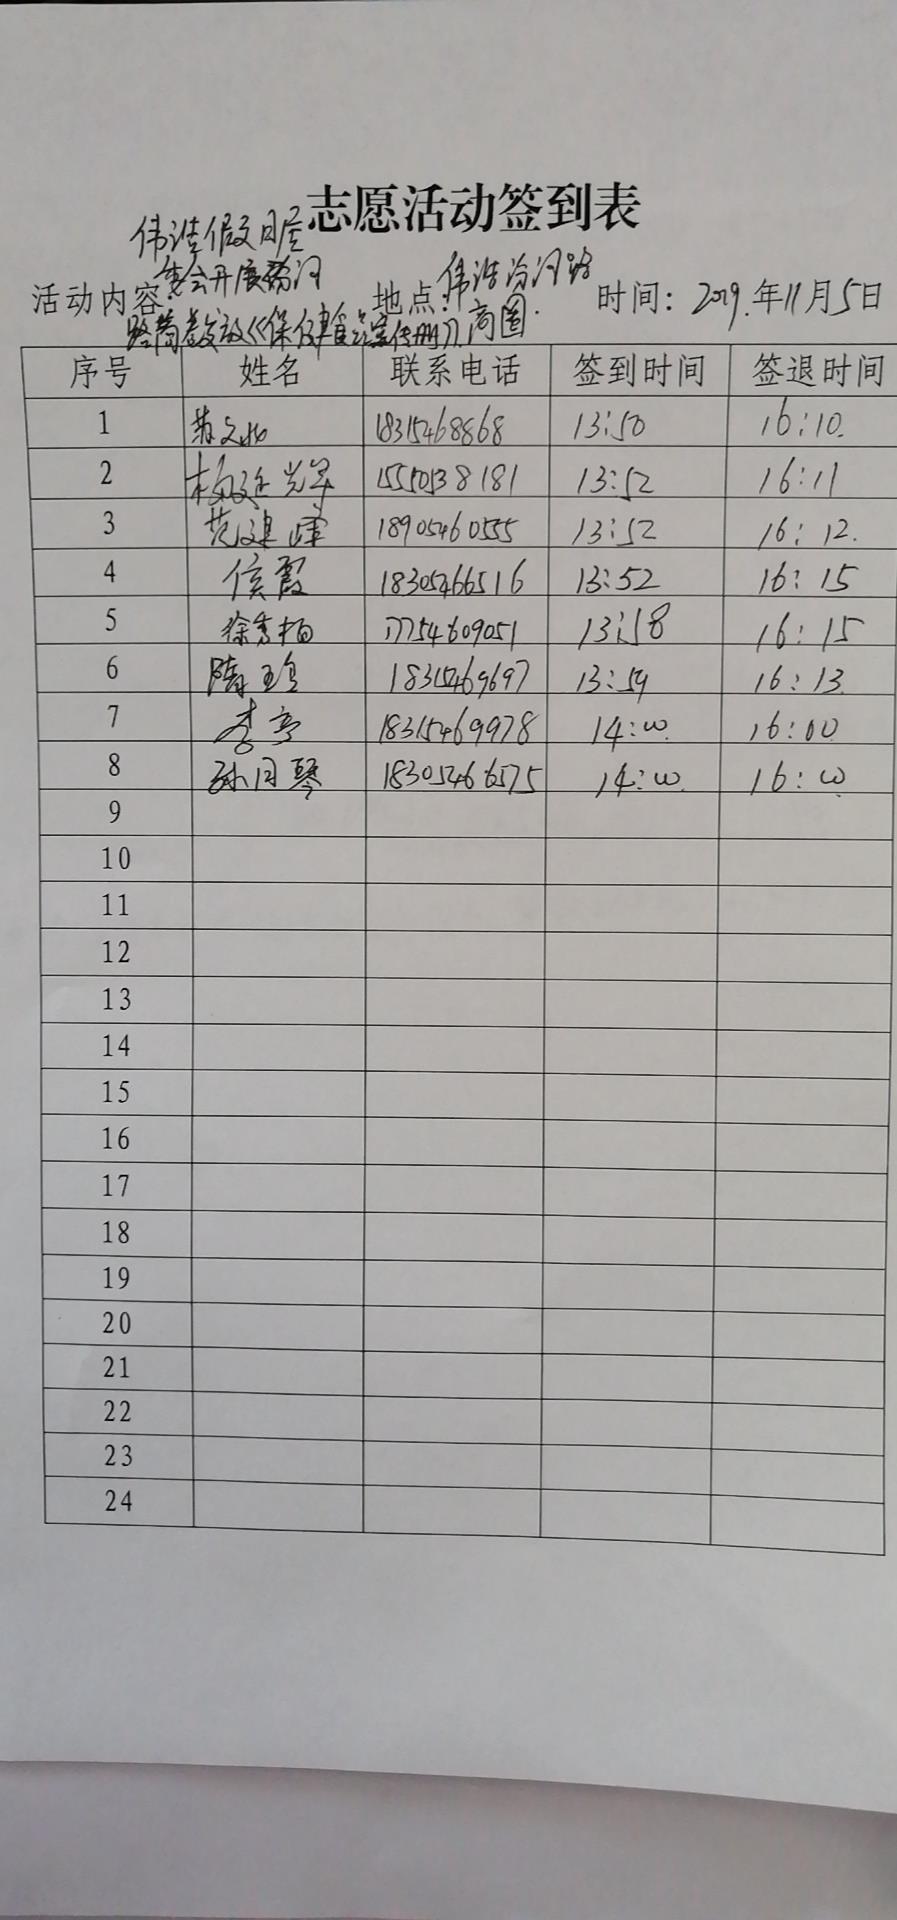 志愿活动签到表
伟浩假日居
委会开展汾河
活动内容: 地点: 伟浩汾河路 时间: 2019.年11月5日
路商发放《保健食品宣传册》 商圈.
序号 姓名 联系电话 签到时间 签退时间
1 18315468868 13:50 16:10.
2 杨廷光军 15550538181 13:52 16:11
3 范建峰 18905460555 13:52 16:12.
4 侯霞 18305466516 13:52 16:15
5 徐秀梅 17754609051 13:58 16:15
6 隋玉 18315469697 13:59 16:13
7 李亭 18315469978 14:00. 16:00
8 孙月琴 18305466575 14:00. 16:00
9
10
11
12
13
14
15
16
17
18
19
20
21
22
23
24